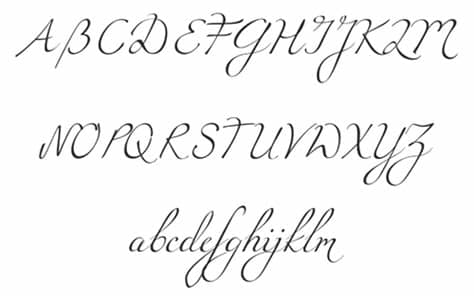 ABCDEFGHIJKLM
NOPQRSTUVWXYZ
abcdefghijklm